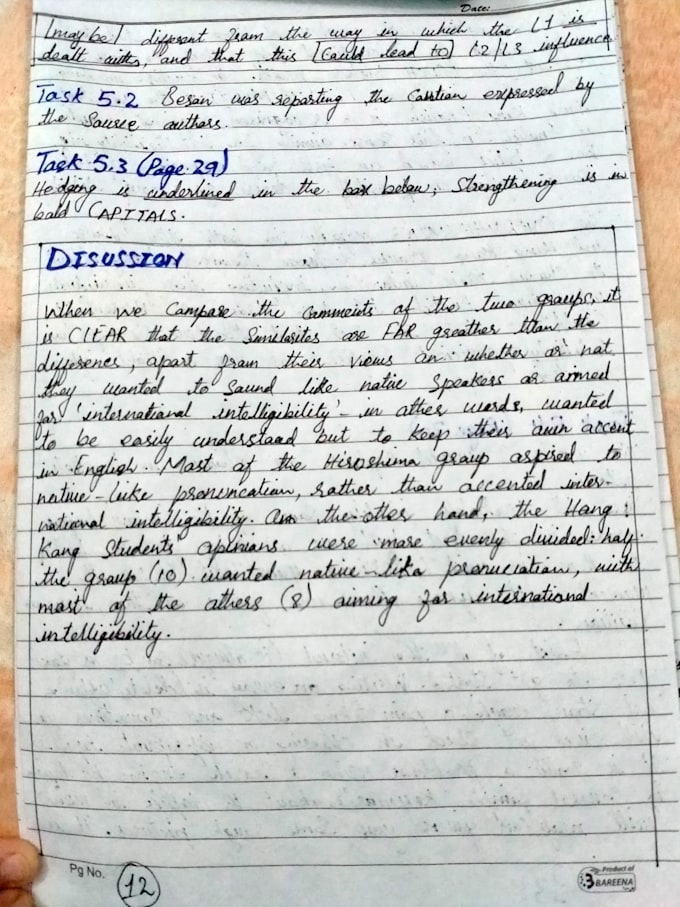 Date:
[may be] different from the way in which the L1 is
dealt with, and that this [could lead to] L2/L3 influence
Task 5.2 Besan was reporting the Caution expressed by
the Source authors.
Task 5.3 (Page 29)
Hedging is underlined in the box below; Strengthening is in
bold CAPITALS.
DISUSSION
When we Compare the Comments of the two groups, it
is CLEAR that the Similarites are FAR greather than the
differenes, apart from their views on whether or not
they wanted to sound like native speakers or aimed
for 'international intelligibility' - in other words, wanted
to be easily understood but to keep their own accent
in English. Most of the Hiroshima group aspired to
native-like pronuncation, rather than accented inter-
national intelligibility. On the other hand, the Hong
Kong Students' opinions were more evenly divided: half
the group (10) wanted native-like pronuciation, with
most of the others (8) aiming for international
intelligibility.
Pg No. 12
Product of
BAREENA